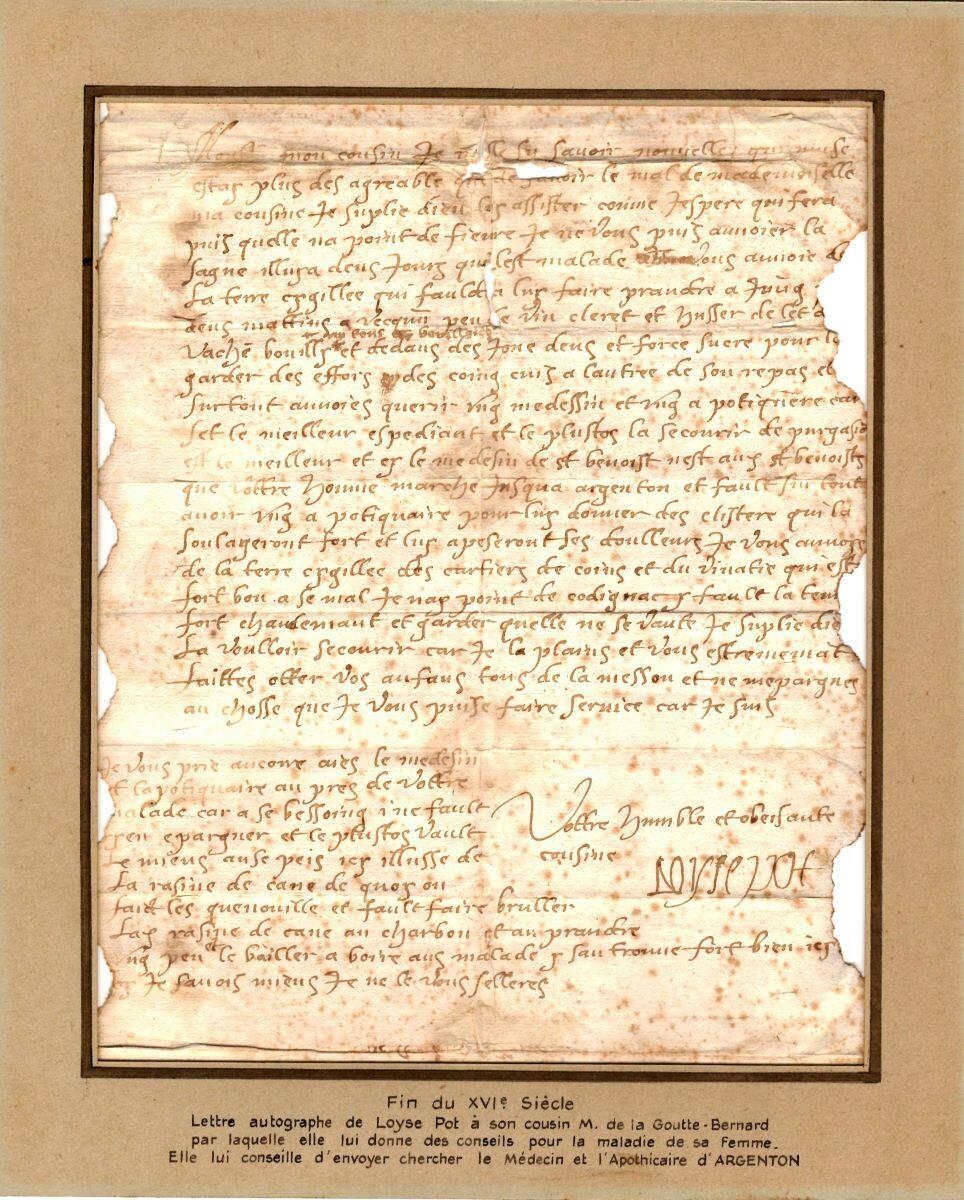 mon cousin Je savoir nouvelle qui muse
estas plus des agreable que de savoir le mal de mademoiselle
ma cousine Je suplie dieu les assister comme Jespere qui fera
puis quelle na point de fievre Je ne vous puis anvoier la
sagne illuya deus Jours quelest malade vous anvoie de
La terre cygillee qui fauld a luy faire prandre a Jung
deus mattins avecqun peu de vin cleret et husser de let de
vache boully et dedans des Jone deus et force sucre pour le
garder des effors des coing cuis a lautree de son repas et
surtout anvoies querir ung medessin et ung apotiquere car
set le meilleur espediant et le plustos la secourir de purgasio
est le meilleur et cy le medesin de st benoist nest aus st benoists
que vottre homme marche Jusqua argenton et fault sur tout
avoir ung apotiquaire pour luy donner des clistere qui la
soulageront fort et luy apeseront ses doulleurs Je vous anvoye
de la terre cygillee des cartiers de coins et du vinatie qui est
fort bon a se mal Je nay point de codignac y fault la tenir
fort chaudemant et garder quelle ne se vante Je suplie die
La voulloir secourir car Je la plains et vous estrememat
faittes otter vos anfans tous de la messon et ne mepargnes
au chosse que Je vous puise faire service car Je suis
Je vous prie ancorre aies le medesin
et lapotiquaire au pres de vottre
malade car a se bessoing i ne fault
rien epargner et le plustos vault
Le mieus ause peis icy illusse de
La rasine de cane de quoy on
faitt les quenouille et fault faire bruller
Lay rasine de cane au charbon et an prandre
ung peu et le bailler a boire aus malade y san trouve fort bien icy
cy Je savois mieus Je ne le vous selleres
Vottre humble et obeisante
cousine
LOYSE POT
Fin du XVIe Siècle
Lettre autographe de Loyse Pot à son cousin M. de la Goutte-Bernard
par laquelle elle lui donne des conseils pour la maladie de sa Femme.
Elle lui conseille d'envoyer chercher le Médecin et l'Apothicaire d'ARGENTON